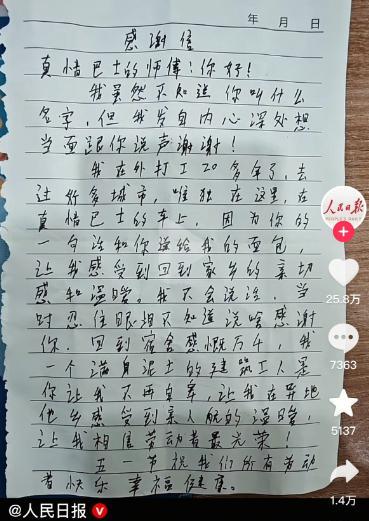 年 月 日
感谢信
真情巴士的师傅：你好！
我虽然不知道你叫什么
名字，但我发自内心深处想
当面跟你说声谢谢！
我在外打工20多年了，去
过许多城市，唯独在这里，在
真情巴士的车上，因为你的
一句话和你送给我的面包，
让我感受到回到家乡的亲切
感和温暖。我不会说话，当
时忍住眼泪不知道说啥感谢
你。回到宿舍感慨万千，我
一个满身泥土的建筑工人是
你让我不再自卑，让我在异地
他乡感受到亲人般的温暖，
让我相信劳动者最光荣！
五一节祝我们所有劳动
者快乐幸福健康。
人民日报
PEOPLE'S DAILY
25.8万
7363
5137
1.4万
@人民日报